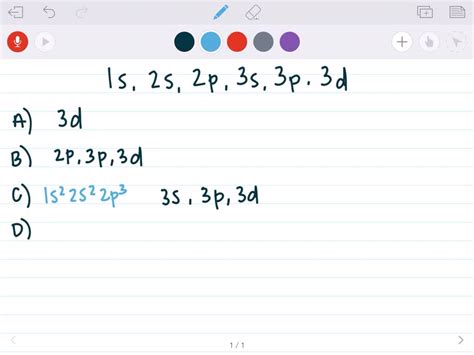 1s, 2s, 2p, 3s, 3p. 3d
A) 3d
B) 2p, 3p, 3d
C) 1s² 2s² 2p³ 3s, 3p, 3d
D)
1 / 1